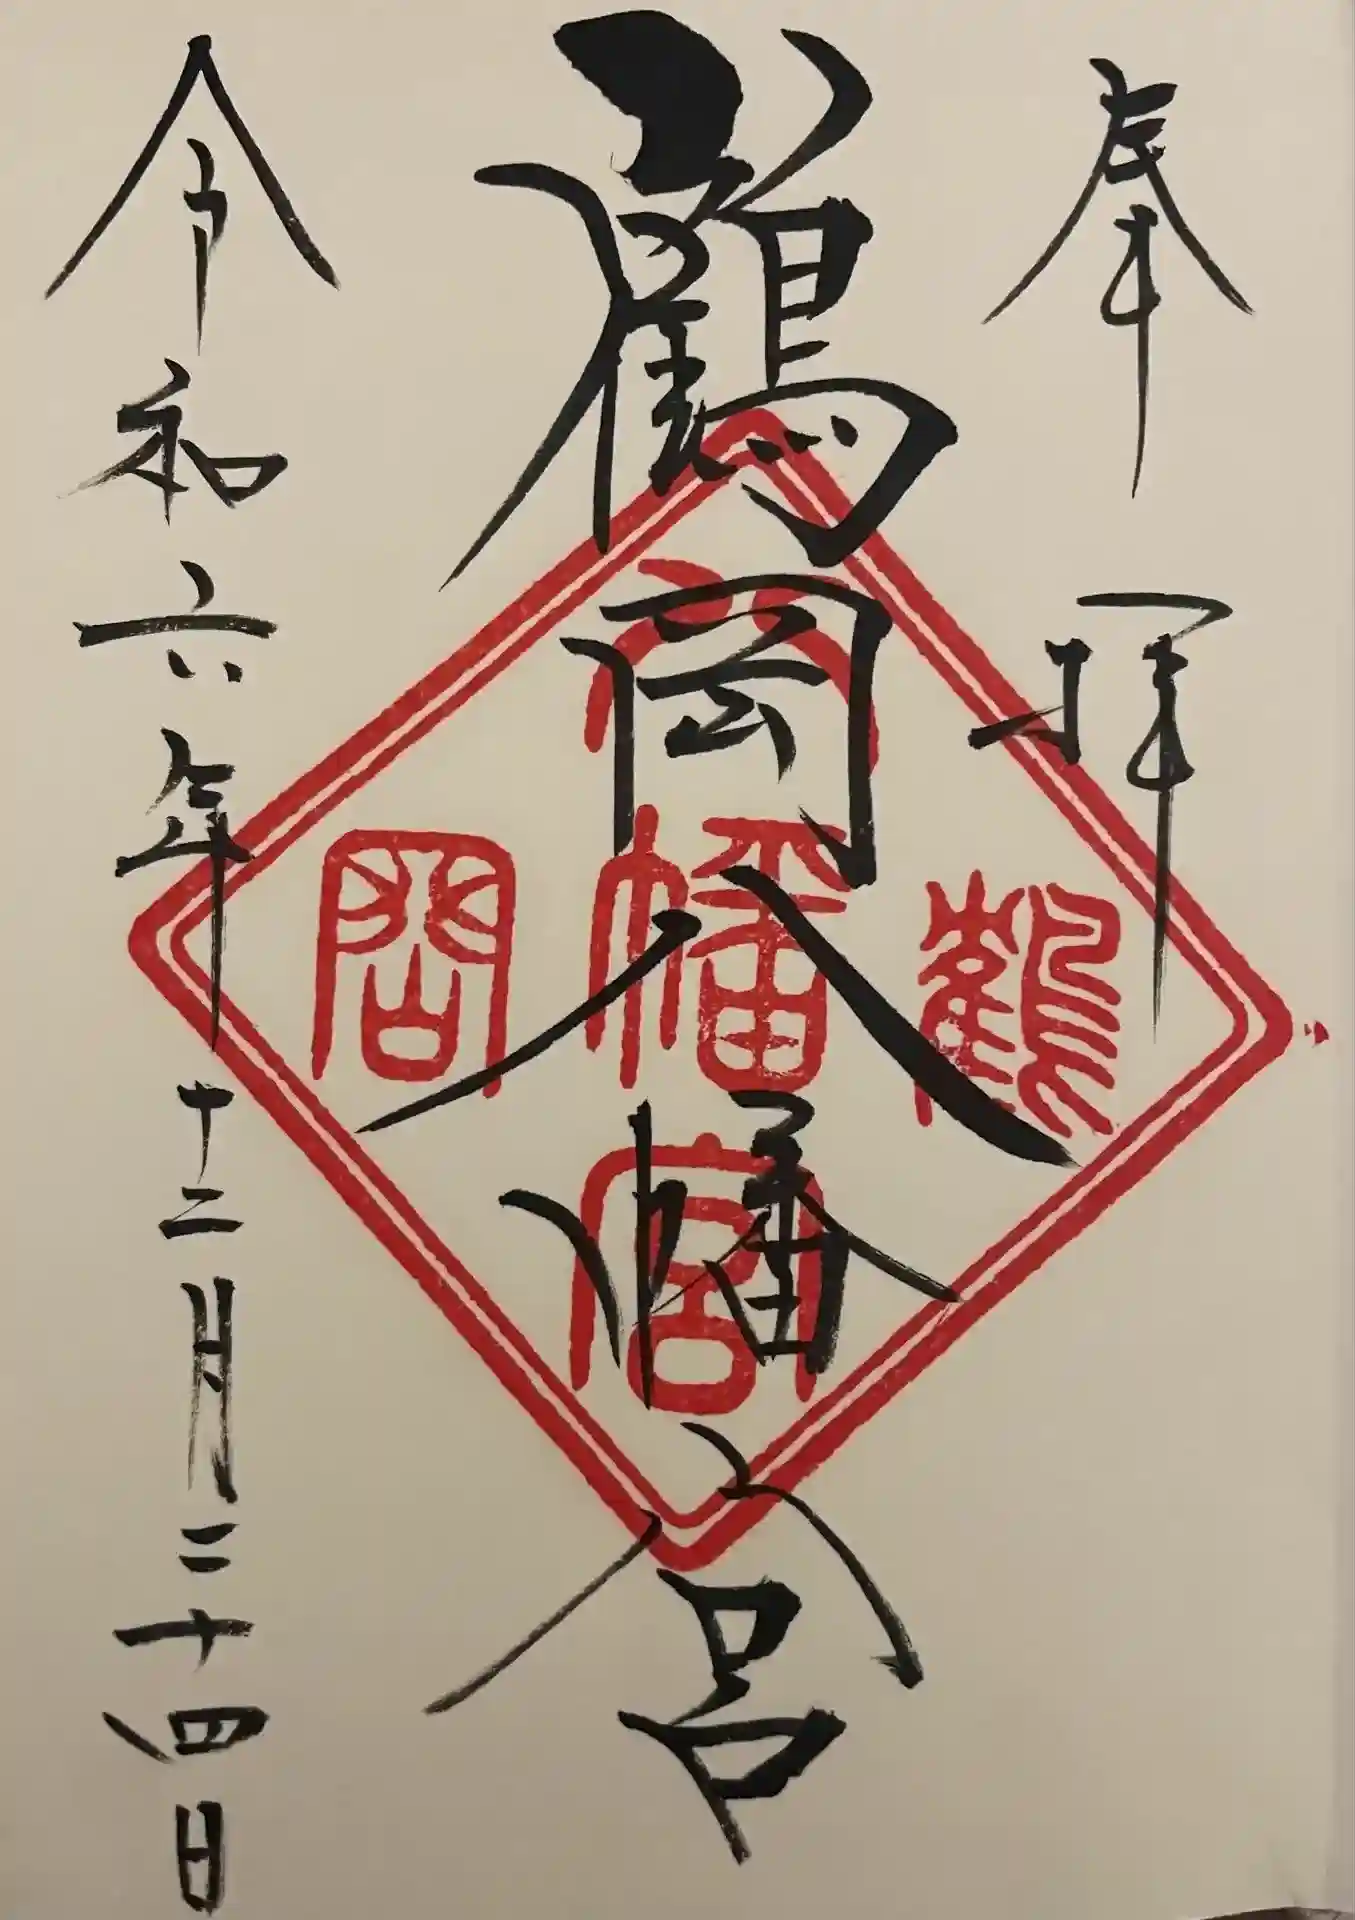 奉拝
鶴岡八幡宮
鶴
八幡宮
岡
令和六年十二月二十四日